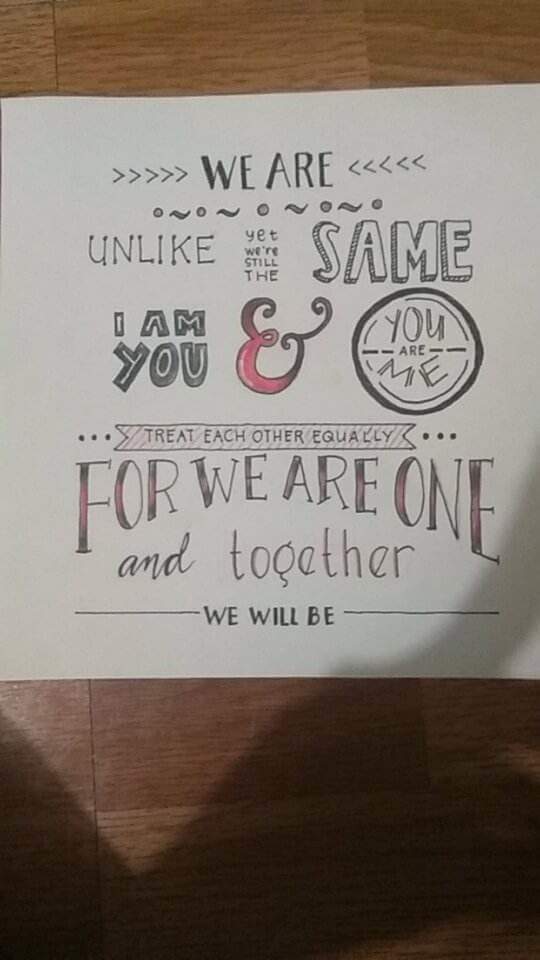 >>>>> WE ARE <<<<<
UNLIKE yet we're STILL THE SAME
I AM YOU & YOU ARE ME
••• TREAT EACH OTHER EQUALLY •••
FOR WE ARE ONE
and together
WE WILL BE